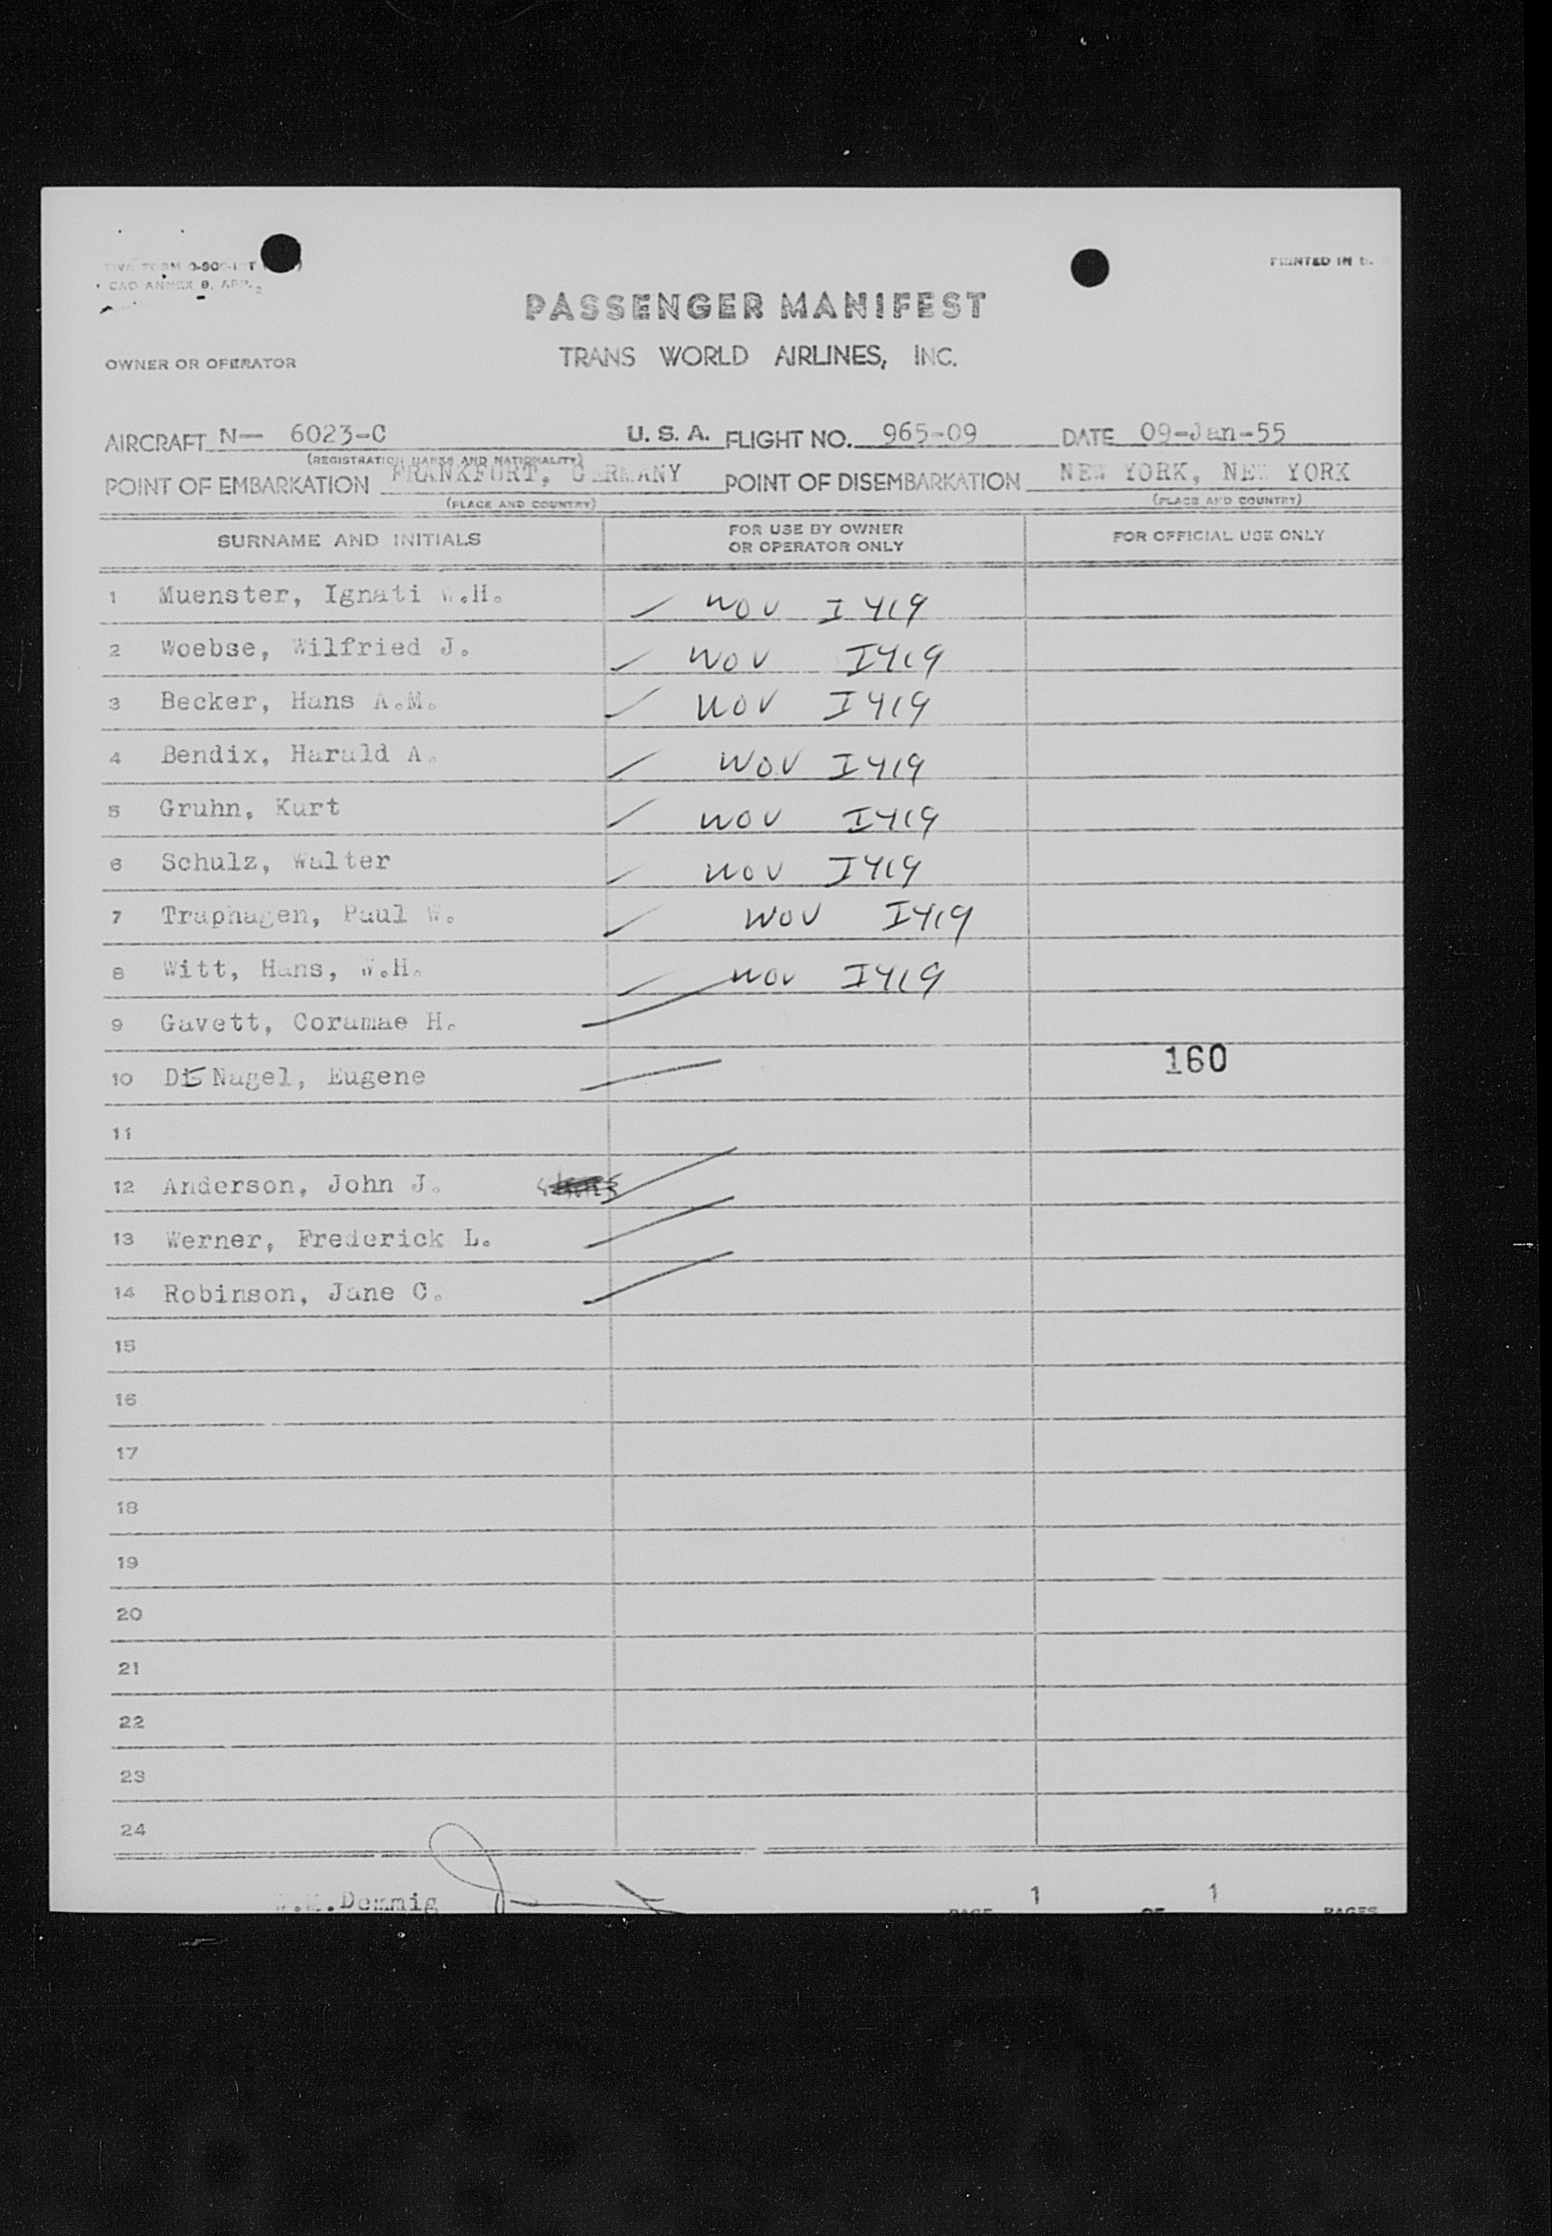 PRINTED IN
PASSENGER MANIFEST
TRANS WORLD AIRLINES, INC.
OWNER OR OPERATOR
AIRCRAFT N— 6023-C U. S. A. FLIGHT NO. 965-09 DATE 09-Jan-55
(REGISTRATION MARKS AND NATIONALITY)
POINT OF EMBARKATION FRANKFURT, GERMANY POINT OF DISEMBARKATION NEW YORK, NEW YORK
(PLACE AND COUNTRY) (PLACE AND COUNTRY)
SURNAME AND INITIALS FOR USE BY OWNER OR OPERATOR ONLY FOR OFFICIAL USE ONLY
1 Muenster, Ignati W.H. WOV I 419
2 Woebse, Wilfried J. WOV I419
3 Becker, Hans A.M. WOV I419
4 Bendix, Harald A. WOV I419
5 Gruhn, Kurt WOV I419
6 Schulz, Walter WOV I419
7 Traphagen, Paul W. WOV I419
8 Witt, Hans, W.H. WOV I419
9 Gavett, Coramae H.
10 Nagel, Eugene 160
11
12 Anderson, John J.
13 Werner, Frederick L.
14 Robinson, Jane C.
15
16
17
18
19
20
21
22
23
24
Demmig 1 1
PAGE OF PAGES